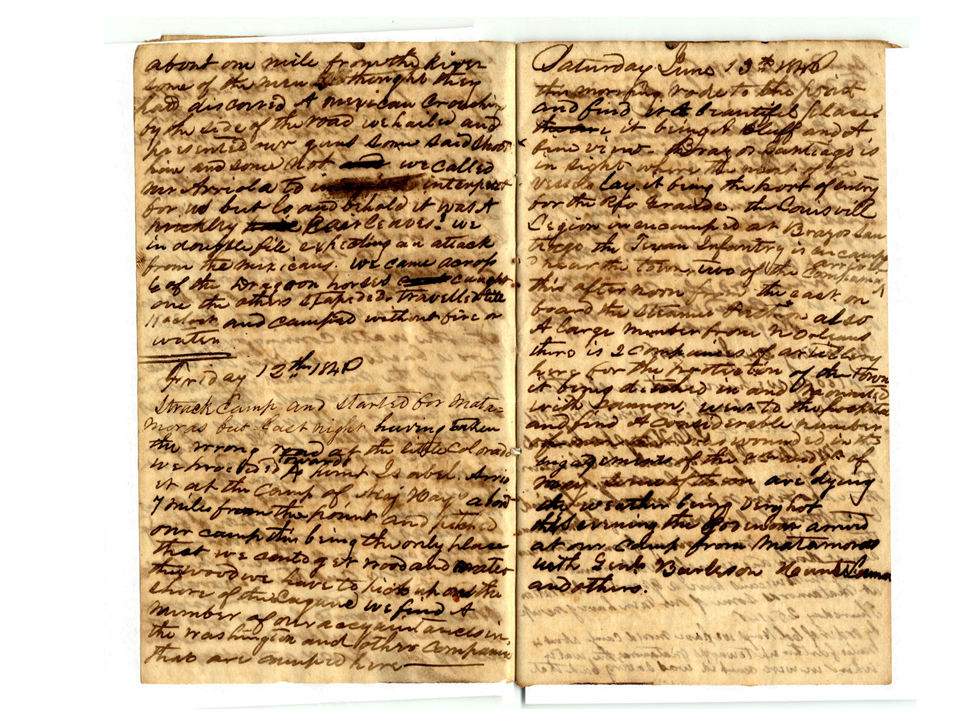 about one mile from the River
some of the men thought they
had discovred A mexican Crouching
by the side of the road we hailed and
presented our guns some said shoot
him and some not we called
Mr Arriola to interpret
for us but lo and behold it was A
prickly Pear leaves. we
in double file expecting an attack
from the mexicans. we came across
6 of the Dragoon horses caught
one the others stapeded. travelled till
11 oclock and camped without fire or
water
Friday 12th 184
Struck Camp and started for Mata-
moras but last night having taken
the wrong road at the little Colorado
we proceeded towards point Isabel.
it at the Camp of Maj Hays about
7 miles from the point and pitched
our camp this being the only place
that we could get wood and water
the wood we have to pick up on the
shore of the Laguna we find A
number of our acquaintances in
the Washington and other companies
that are camped here
Saturday June 13th 184
this morning rode to the point
and find it A beautiful place
it being A Bluff and A
fine view. Brazos Santiago is
in sight where the most of the
vessels lay. it being the port of entry
for the Rio Grande. the Louisvill
Legion is encamped at Brazos San
tiago the Texan Infantry is encamp
near the town, two of the companies
this afternoon from the east on
board the steamer also
A large number from N Orleans
thire is 2 companies of artillery
here for the protection of the town
it being ditched in and
with Cannon, went to the hospital
and find A considerable number
wounded in the
engagements of the 8 and 9th of
May some of them are dying
the weather being very hot
this evening the Governor arrivd
at our camp from Matamoras
with Genls Burleson Hunt Lamar
and others.